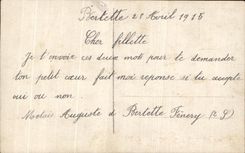 Bertette 21 Avril 1915
Cher fillette
Je t'envoie ces deux mot pour te demander
ton petit cœur fait moi reponse si tu accepte
oui ou non
Auguste de Bertette Finery